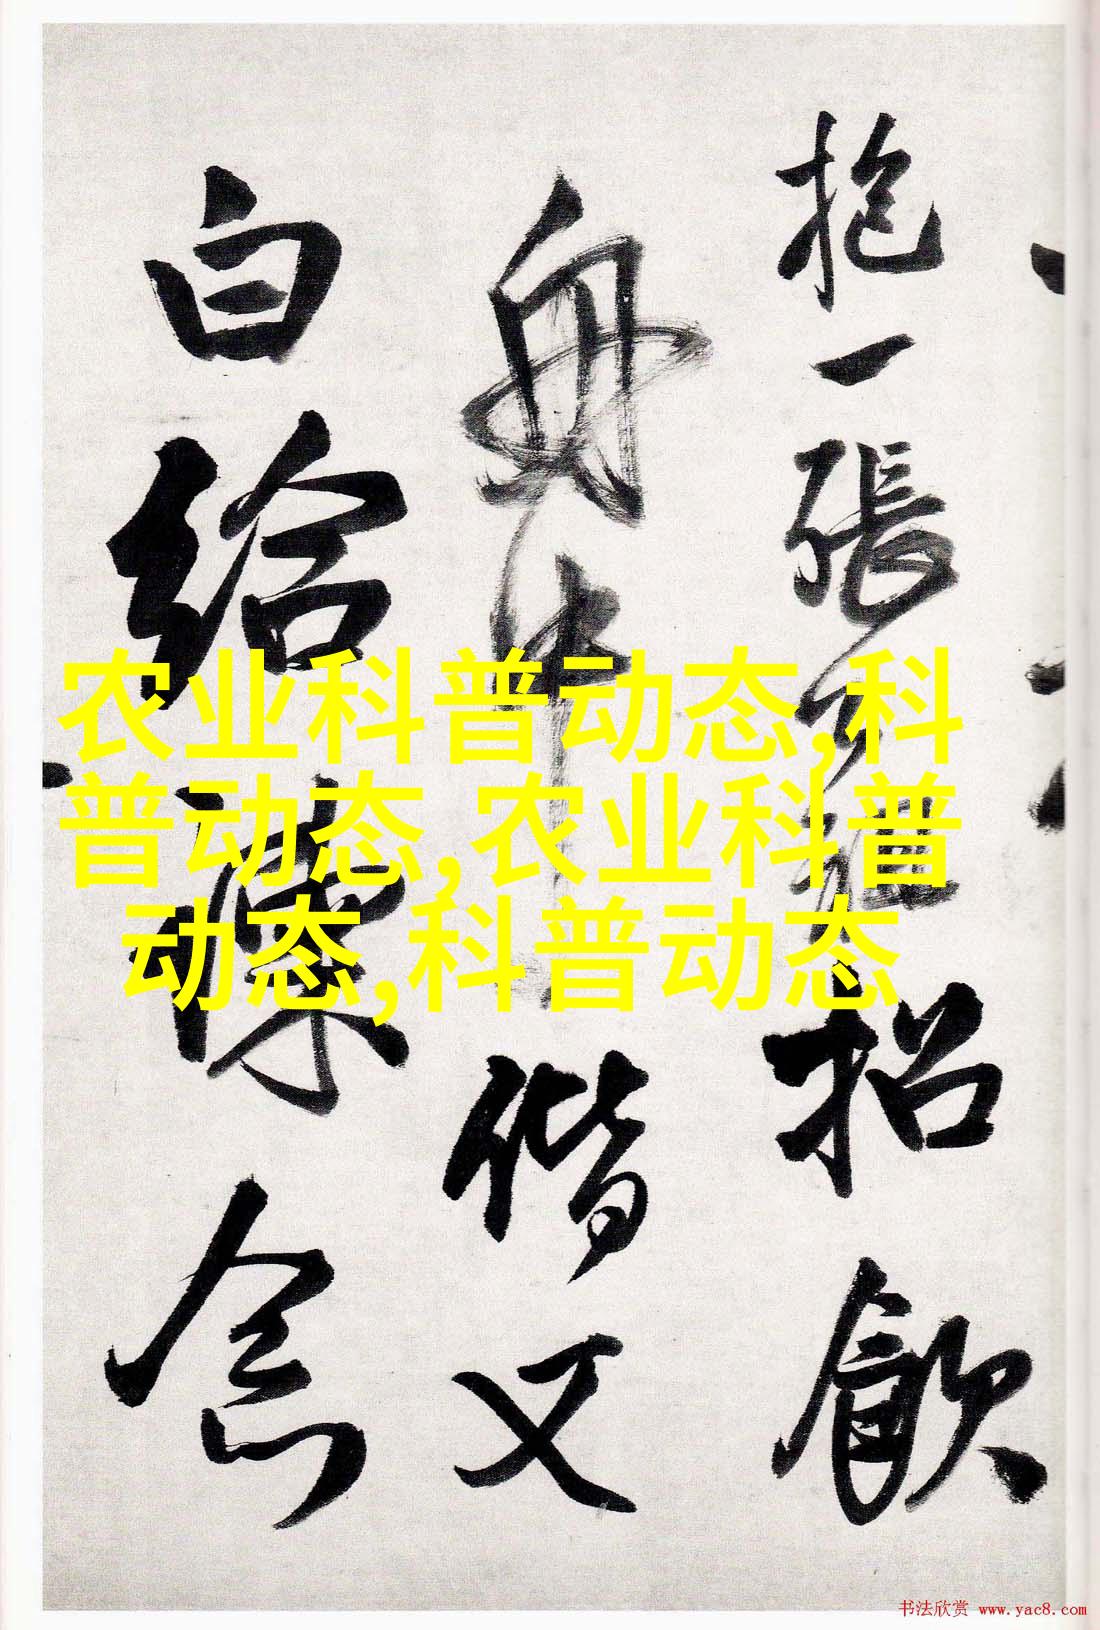 抱一張
招飲
舟中
偕又
白給
念
农业科普动态,科
普动态,农业科普
动态,科普动态
书法欣赏 www.yac8.com